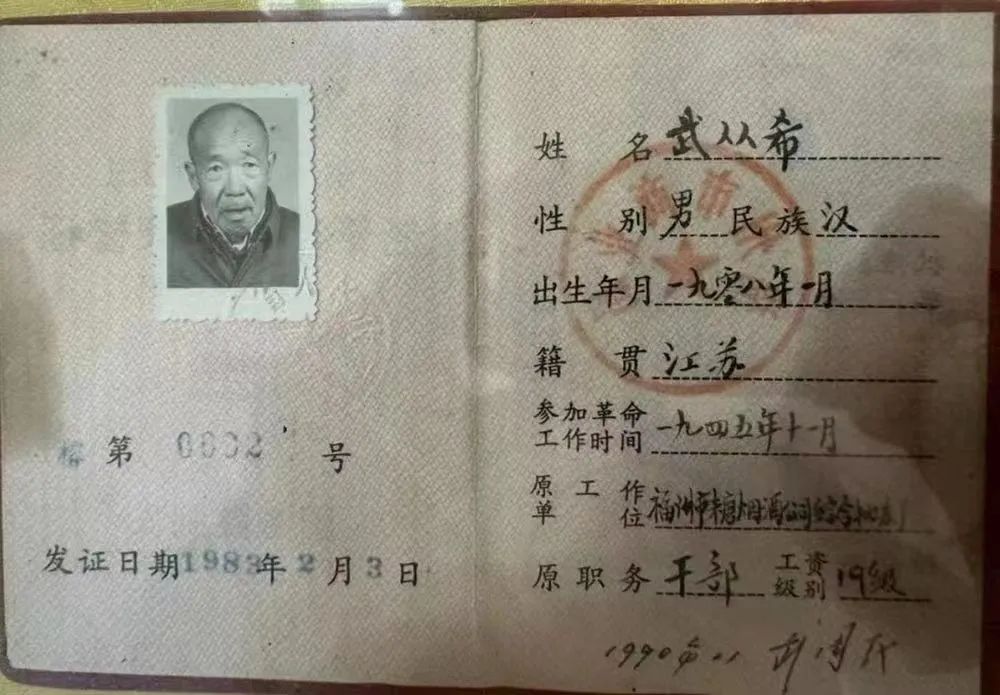 第 0002 号
发证日期1983年2月3日
姓名 武从希
性别 男 民族 汉
出生年月 一九零八年一月
籍贯 江苏
参加革命
工作时间 一九四五年十一月
原工作
单位 福州市糖烟酒公司
原职务 干部 工资级别 19级
1990年11